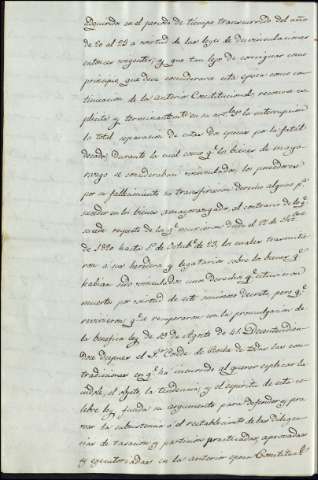 adquirido en el periodo de tiempo transcurrido del año
de 20 al 23 a virtud de las leyes de desvinculaciones
entonces vigentes; y que tan lejos de consignar como
principio que deve considerarse esta epoca como con-
tinuacion de la anterior Constitucional, reconoce es-
plicita y terminantemente en su artº la interrupcion
la total separacion de estas dos epocas por la fatal
decada, durante la cual como qe los bienes de mayo-
razgo se consideraban vinculados, los poseedores
por su fallecimiento no transfirieron derecho alguno
en los bienes amayorazgados, al contrario de lo qe
sucede respecto de los qe murieron desde el 11 de
de 1820 hasta 1º de Octubre de 23, los cuales transmitie-
ron a sus herederos y legatarios sobre los bienes qe
habian sido vinculados unos derechos qe
muertos por virtud de este mismo decreto, pero qe
revivieron, qe se recuperaron con la promulgacion de
la benefica ley de 19 de Agosto de 41. Desentendien-
dose despues el Sr Conde de de todas las con-
tradicciones en qe ha incurrido al querer esplicar
el objeto, la tendencia y el espiritu de esta ce-
lebre ley, funda su argumento para defender y pro-
var la subsistencia o el restablecimto de las diligen-
cias de tasacion y particion practicadas, aprovadas
y ejecutoriadas en la anterior epoca Constitucl